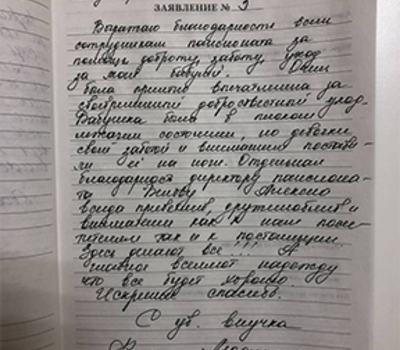 ЗАЯВЛЕНИЕ № 3
Выражаю благодарность всем
сотрудникам пансионата за
помощь, доброту, заботу, уход
за моей бабушкой. Очень
была приятно впечатлена за
добросовестный уход.
Бабушка была в плохом
лежачем состоянии, но девочки
своей заботой и вниманием постави-
ли её на ноги. Отдельная
благодарность директору пансиона-
та Алексею
всегда приветлив, дружелюбен и
внимателен как к нам посе-
тителям так и к постояльцам.
Здесь делают все!!! А
главное вселяют надежду
что все будет хорошо
Искренне спасибо.
С ув. внучка